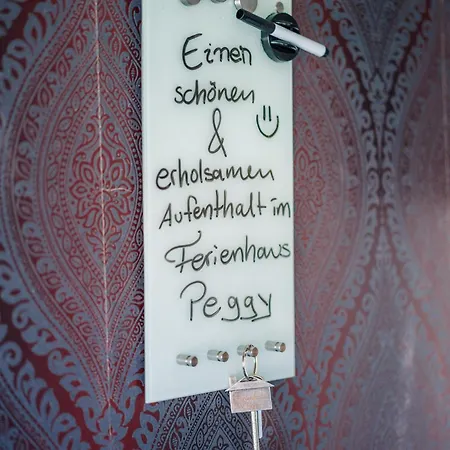 Einen
schönen
&
erholsamen
Aufenthalt im
Ferienhaus
Peggy